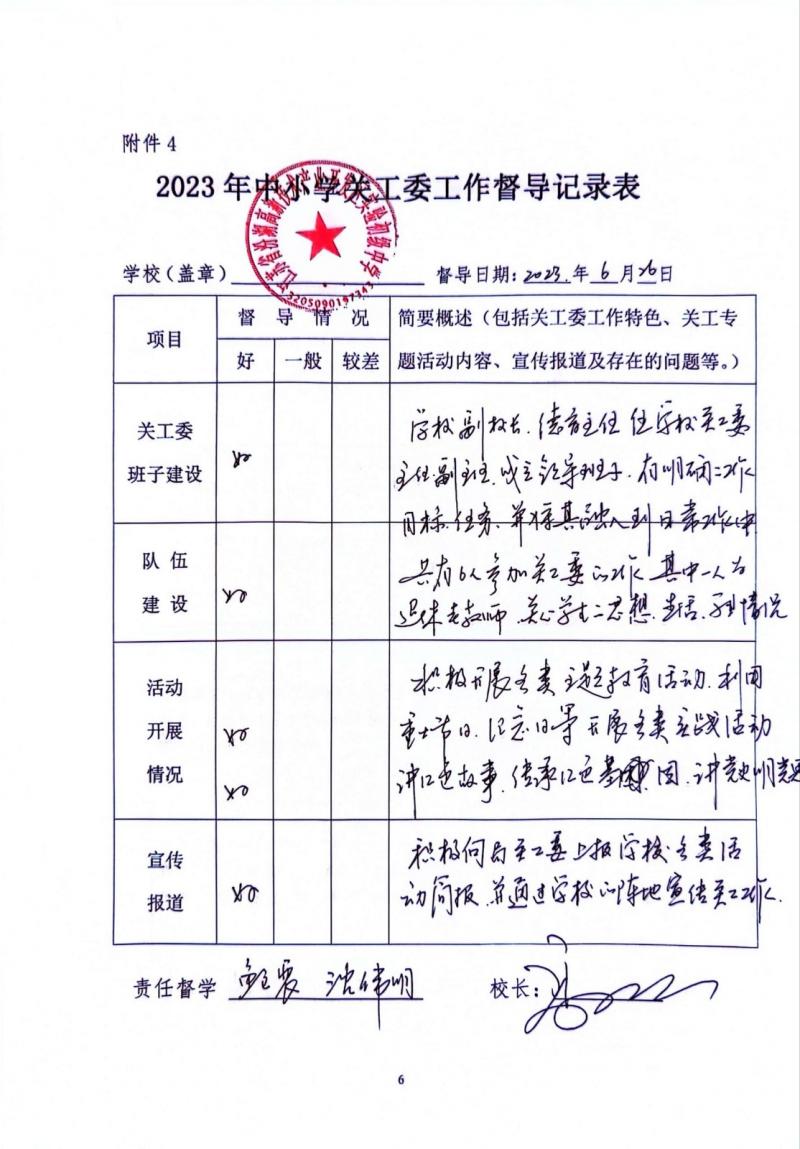 附件4
2023年中小学关工委工作督导记录表
江苏省汾湖高新技术产业开发区实验初级中学
3205090197343
学校(盖章) 督导日期:2023.年6月26日
项目 督导情况 简要概述(包括关工委工作特色、关工专
好 一般 较差 题活动内容、宣传报道及存在的问题等。)
关工委
班子建设
好
学校副校长、德育主任任学校关工委
主任副主任,成立领导班子.有明确工作
目标、任务,并将其融入到日常工作中
队伍
建设
好
共有6人参加关工委的工作 其中一人为
退休老教师.关心学生思想.生活.
情况
活动
开展
情况
好
好
积极开展各类主题教育活动.利用
重大节日.纪念日等开展各类实践活动
讲红色故事,传承红色基因,讲党史明党
宣传
报道
好
积极向局关工委上报学校各类活
动简报,并通过学校的阵地宣传关工工作.
责任督学 沈伟明 校长:
6